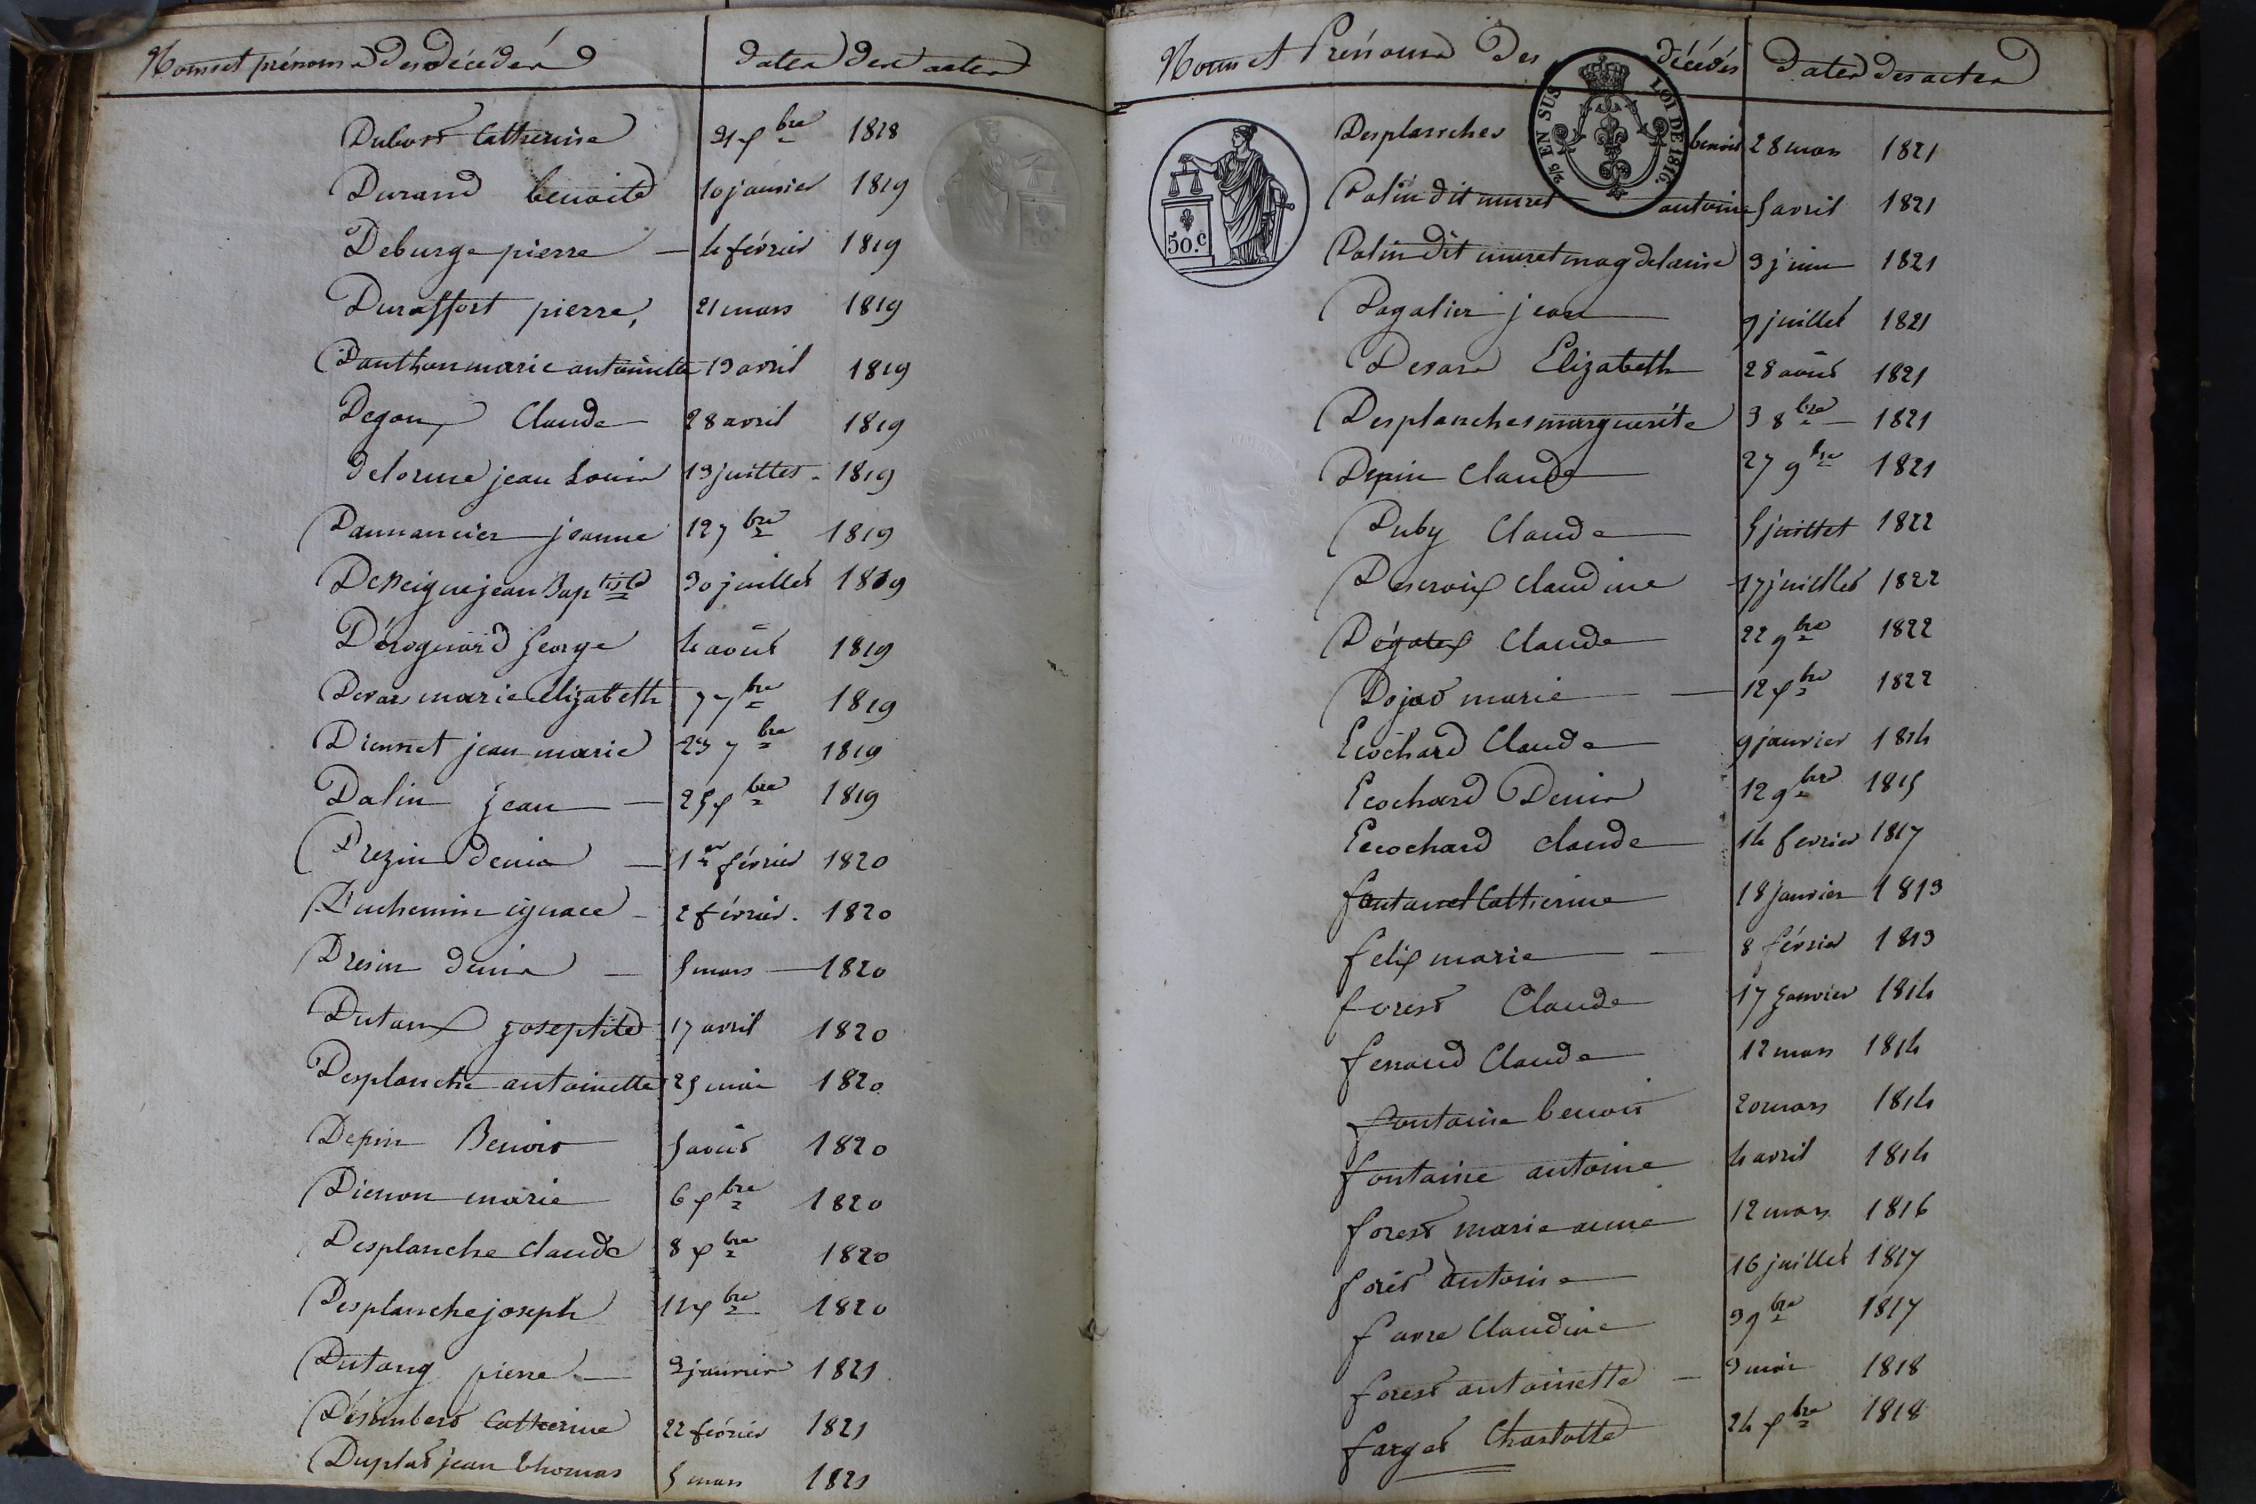 Noms et prénoms des décédés dates des actes
Dubost Catherine 21 xbre 1818
Durand benoite 10 janvier 1819
Deburge pierre 4 février 1819
Duraffort pierre, 21 mars 1819
Danthon marie antoinette 19 avril 1819
Degoux Claude 28 avril 1819
delorme jean Louis 13 juillet 1819
jeanne 12 7bre 1819
jean Baptiste 30 juillet 1819
George 4 août 1819
Devars marie elizabeth 7 7bre 1819
Dionnet jean marie 23 7bre 1819
Dalin Jean 25 xbre 1819
Drezin denis 1er février 1820
Duchemin ignace 2 février 1820
Dresin denis 5 mars 1820
Dutour Josephte 17 avril 1820
Desplanche antoinette 25 mai 1820
Depin Benoit 5 août 1820
Dienon marie 6 xbre 1820
Desplanche Claude 8 xbre 1820
Desplanche joseph 11 xbre 1820
Dutang pierre 3 janvier 1821
Catherine 22 février 1821
Duplat jean thomas 5 mars 1821
Noms et Prénoms Des décédés Dates des actes
2/5 EN SUS LOI DE 1816.
50.c
Desplanches benoit 28 mars 1821
Dalin dit muret antoine 5 avril 1821
Dalin dit muret magdelaine 9 juin 1821
Dagalier jean 9 juillet 1821
Elizabeth 28 août 1821
Desplanches marguerite 3 8bre 1821
Depin Claude 27 9bre 1821
Duby Claude 5 juillet 1822
Descroix Claudine 17 juillet 1822
Dégoutex Claude 22 9bre 1822
Dojat marie 12 xbre 1822
Ecochard Claude 9 janvier 1814
Ecochard Denis 12 9bre 1815
Ecochard claude 14 fevrier 1817
fontanel Catherine 18 janvier 1813
felix marie 8 février 1813
forest Claude 17 Janvier 1814
ferraud Claude 12 mars 1814
fontaine benoit 20 mars 1814
fontaine antoine 4 avril 1814
forest marie anne 12 mars 1816
forêt antoine 16 juillet 1817
favre Claudine 3 9bre 1817
forest antoinette 9 mai 1818
farges Charlotte 24 xbre 1818